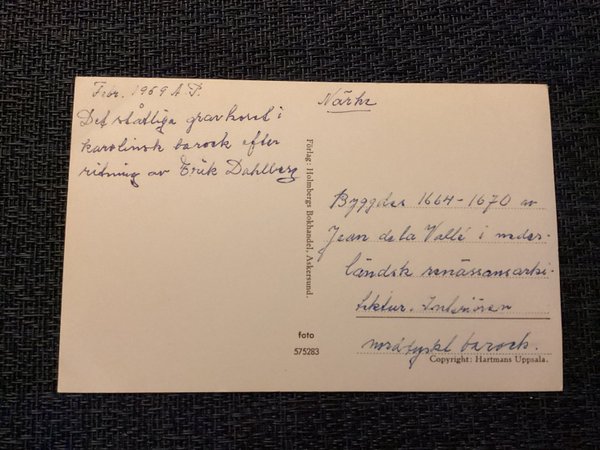 Febr. 1969 A.P.
Det ståtliga gravkoret i
karolinsk barock efter
ritning av Erik Dahlberg
Förlag: Holmbergs Bokhandel, Askersund.
foto
575283
Närke
Byggdes 1664-1670 av
Jean de la Vallé i neder-
ländsk renässansarki-
tektur. Interiören
nordtyskt barock.
Copyright: Hartmans Uppsala.